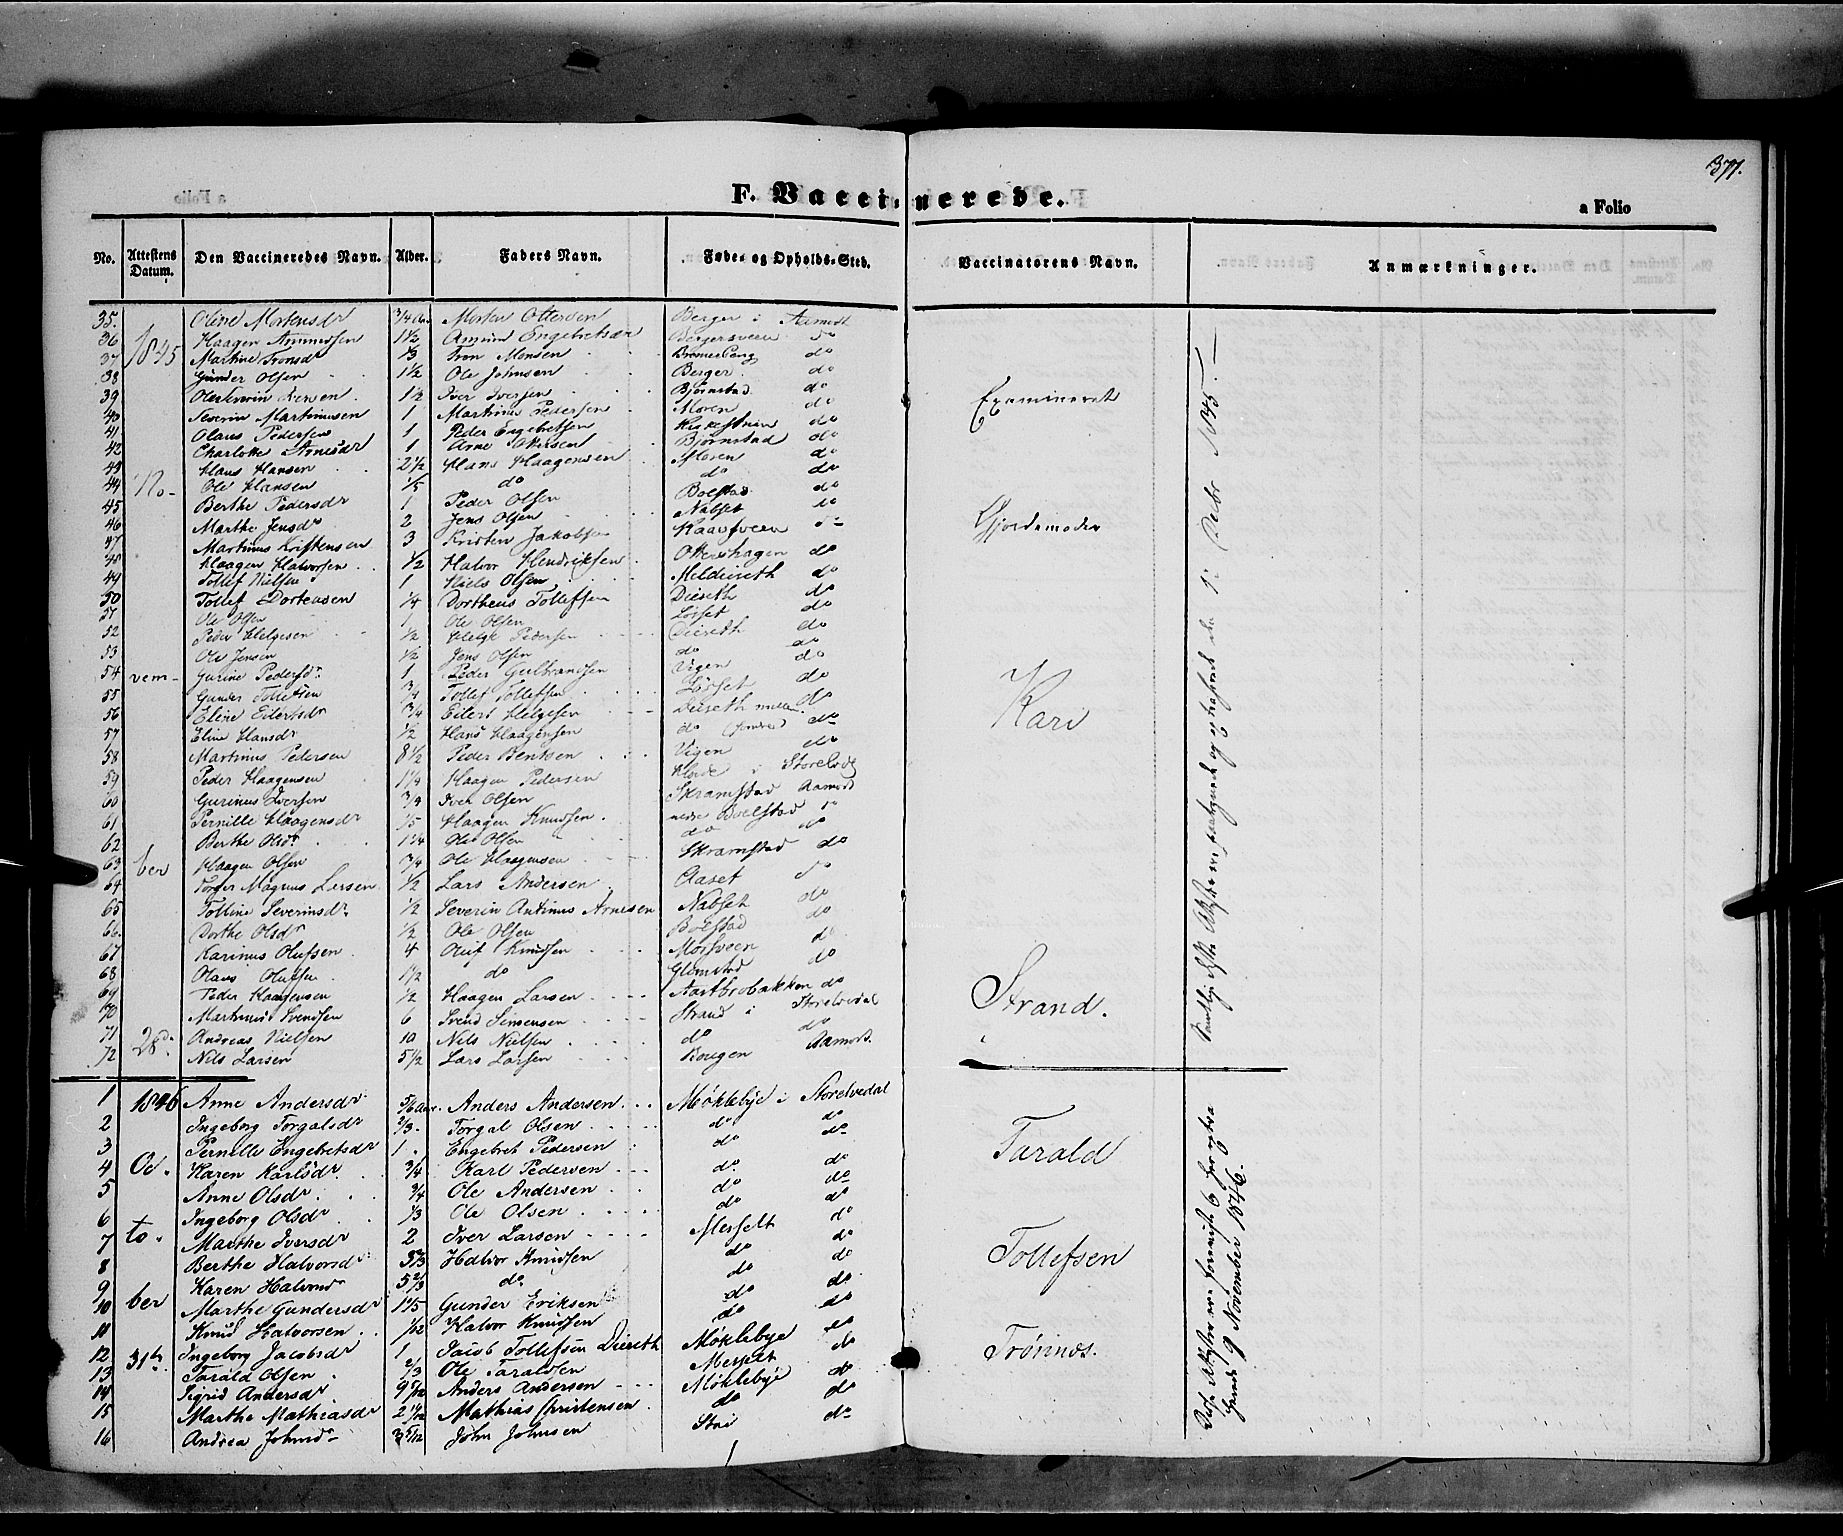 377.
F. Vaccinerede.
a Folio
No. Attestens Datum. Den Vaccineredes Navn. Alder. Faders Navn. Føde- og Opholds-Sted. Vaccinatorens Navn. Anmærkninger.
35. Oline Mortensdr 3/4 Aar Morten Ottersen Berger i Aamodt
36 1845 Haagen Amundsen 1 1/2 Amund Engebretsen Bergersveen do
37 Martine Tronsdr 1/3 Tron Monsen do
38 Gunder Olsen 1 1/2 Ole Johnsen Berger do
39 Ole Severin Iversen 1 1/2 Iver Iversen Bjørnstad do Examineret
40 Severin Martinusen 1 Martinus Pedersen Moren do
41 Olaus Pedersen 1 Peder Engebretsen do
42 Charlotte Arnesdr 1 Arne Ottersen Bjørnstad do
43 Hans Hansen 2 1/2 Hans Haagensen Moren do
44 No- Ole Hansen 1/5 do do do
45 Berthe Pedersdr 1 Peder Olsen Bolstad do
46 Marthe Jensdr 2 Jens Olsen Nabset do Gjordemoder
47 Martinus Kristensen 3 Kristen Jakobsen do
48 Haagen Halvorsen 1/2 Halvor Hendriksen Ottershagen do
49 Tollef Nielsen 1 Niels Olsen Meldieseth do
50 Tollef Dortensen 1/4 Dortheus Tollefsen Dieseth do
51 Ole Olsen 1 Ole Olsen Løsset do
52 Peder Helgesen 1/2 Helge Pedersen Dieseth do
53 Ole Jensen 1/2 Jens Olsen do do
54 vem- Gurine Pedersdr 1 Peder Gulbrandsen Vigen do
55 Gunder Tollefsen 3/4 Tollef Tollefsen Løsset do
56 Eline Eilertsdr 3/4 Eilert Helgesen Dieseth do Kari
57 Eline Hansdr 1/2 Hans Haagensen do do
58 Martinus Pedersen 8 1/2 Peder Bentsen Vigen do
59 Peder Haagensen 1 1/4 Haagen Pedersen i Storelvd
60 Gurinus Iversen 3/4 Iver Olsen Skramstad Aamodt
61 Pernille Haagensdr 1/5 Haagen Knudsen nedre Bolstad do
62 Berthe Olsdr 1 1/4 Ole Olsen do do
63 ber Haagen Olsen 3/4 Ole Haagensen Skramstad do
64 Torger Magnus Larsen 1/2 Lars Andersen Aaset do
65 Tolline Severinsdr 1/2 Severin Antinus Arnesen Nabset do
66 Dorthe Olsdr 1/2 Ole Olsen Bolstad do
67 Karinus Olufsen 4 Oluf Knudsen Mosveen do
68 Olaus Olufsen 1 1/2 do Glomstad do
69 Peder Haagensen 1/2 Haagen Larsen Aastbrobakken do Strand.
70 Martinus Svendsen 6 Svend Simensen Strand i Storelvedal
71 28de Andreas Nielsen 10 Nils Nielsen do do
72 Nils Larsen 5 1/2 Lars Larsen Kougen Aamodt.
1 1846 Anne Andersdr 5/6 Aar. Anders Andersen Møklebye i Storelvedal
2 Ingeborg Torgalsdr 2/3. Torgal Olsen do do
3 Pernille Engebretsdr 1. Engebret Pedersen do do Tarald
4 Oc- Karen Karlsdr 3/4 Karl Pedersen do do
5 Anne Olsdr 3/4 Ole Andersen do do
6 Ingeborg Olsdr 1/3 Ole Olsen do do
7 to- Marthe Iversdr 2 Iver Larsen Messelt do
8 Berthe Halvorsdr 3 2/3 Halvor Knudsen do do Tollefsen
9 Karen Halvorsdr 5 2/3 do do do
10 ber Marthe Gundersdr Gunder Eriksen do do
11 Knud Halvorsen 1/12 Halvor Knudsen do do
12 31te Ingeborg Jacobsdr 1 Jacob Tollefsen Dieseth Møklebye do Trøsnæs.
13 Tarald Olsen 2/3 Ole Taraldsen Messelt do
14 Sigrid Andersdr 9 5/12 Anders Andersen Møklebye do
15 Marthe Mathiasdr 2 11/12 Mathias Christensen do do
16 Andrea Johnsdr 3 5/12 John Johnsen Stai do
Decbr 1845.
9 November 1846.